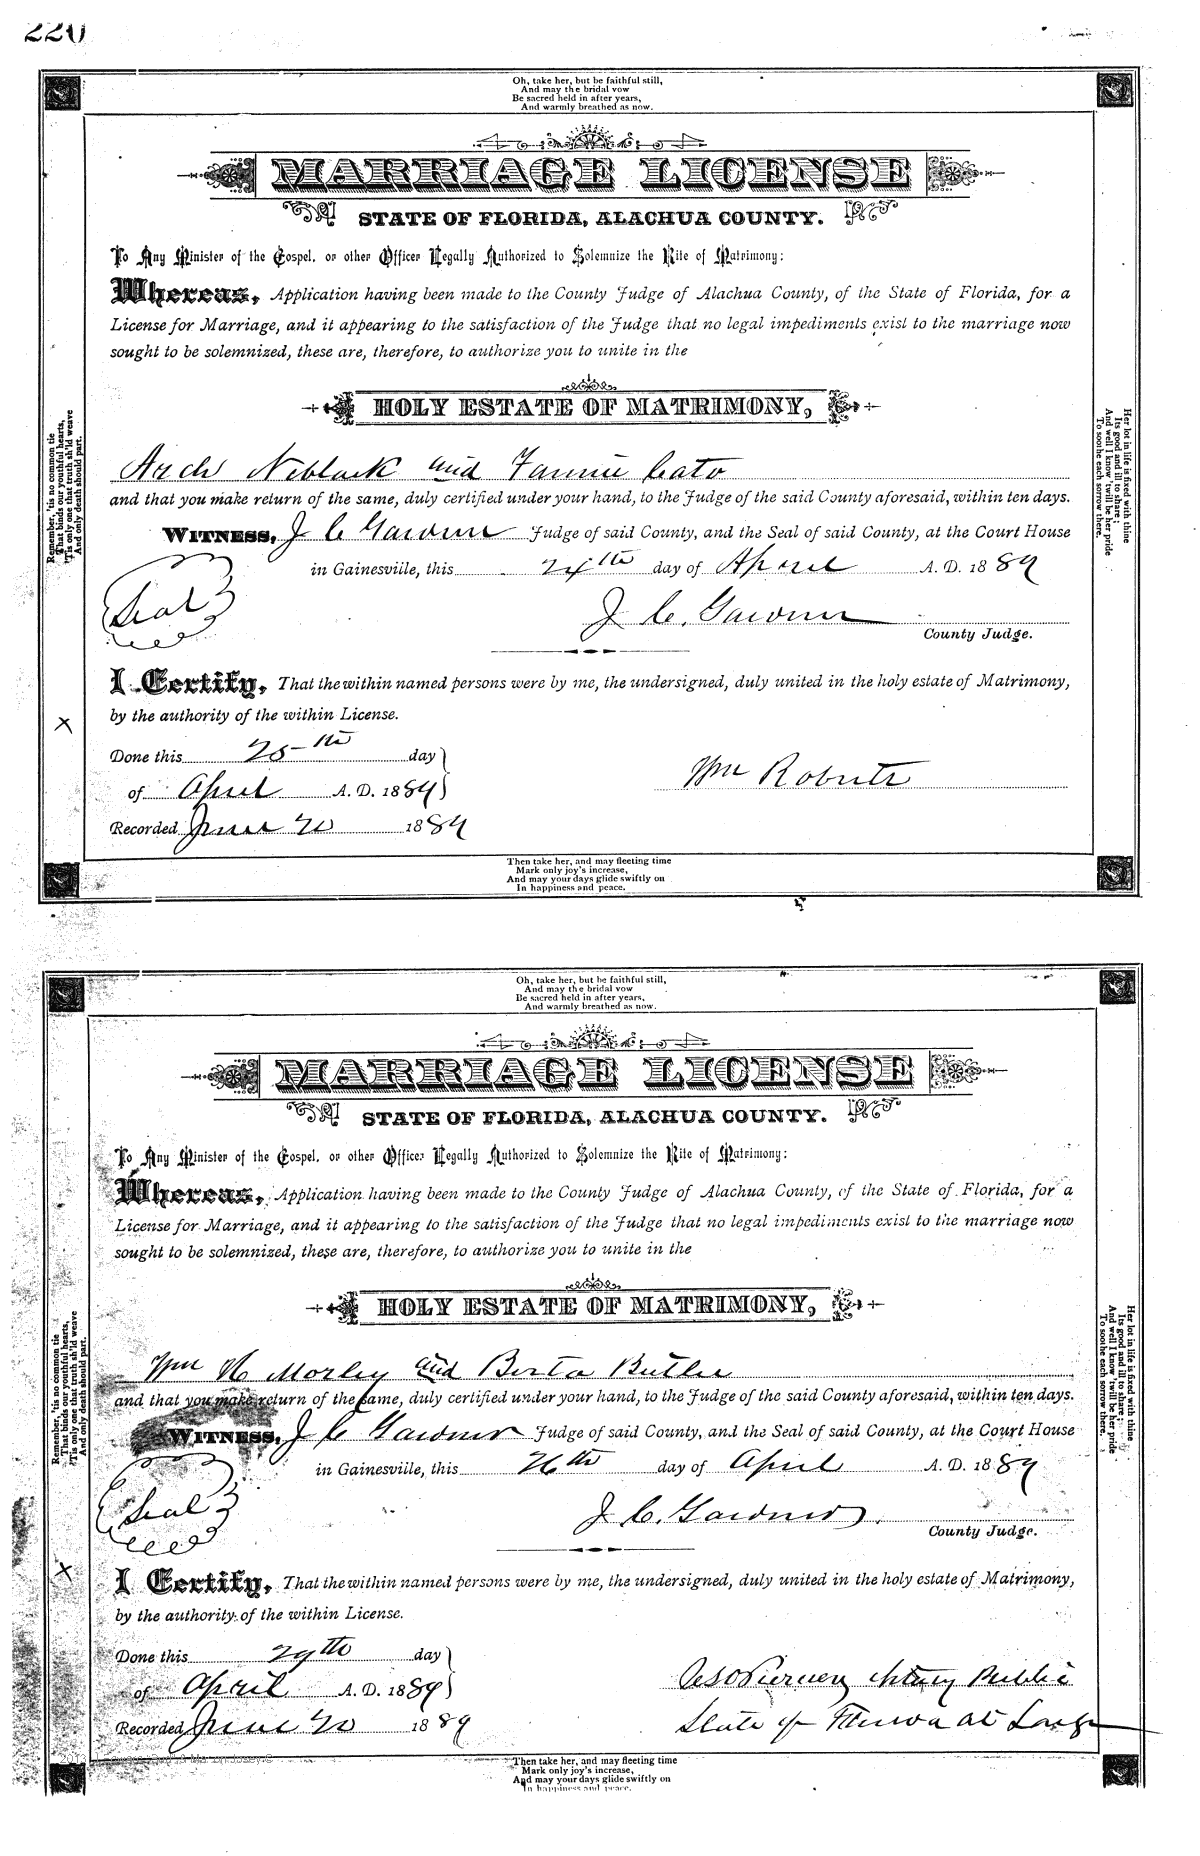 220
Oh, take her, but be faithful still,
And may the bridal vow
Be sacred held in after years,
And warmly breathed as now.
MARRIAGE LICENSE
STATE OF FLORIDA, ALACHUA COUNTY.
To Any Minister of the Gospel, or other Officer Legally Authorized to Solemnize the Rite of Matrimony:
Whereas, Application having been made to the County Judge of Alachua County, of the State of Florida, for a
License for Marriage, and it appearing to the satisfaction of the Judge that no legal impediments exist to the marriage now
sought to be solemnized, these are, therefore, to authorize you to unite in the
HOLY ESTATE OF MATRIMONY,
Arch Niblack and Fannie Cato
and that you make return of the same, duly certified under your hand, to the Judge of the said County aforesaid, within ten days.
WITNESS, J C Gardner Judge of said County, and the Seal of said County, at the Court House
in Gainesville, this 24th day of April A. D. 1889
Seal
J. C. Gardner
County Judge.
I Certify, That the within named persons were by me, the undersigned, duly united in the holy estate of Matrimony,
by the authority of the within License.
Done this 25th day
of April A. D. 1889
Wm Roberts
Recorded June 20 1889
Remember, 'tis no common tie
That binds our youthful hearts,
'Tis only one that truth sh'ld weave
And only death should part.
Her lot in life is fixed with thine
Its good and ill to share;
And well I know 'twill be her pride
To soothe each sorrow there.
Then take her, and may fleeting time
Mark only joy's increase,
And may your days glide swiftly on
In happiness and peace.
Oh, take her, but be faithful still,
And may the bridal vow
Be sacred held in after years,
And warmly breathed as now.
MARRIAGE LICENSE
STATE OF FLORIDA, ALACHUA COUNTY.
To Any Minister of the Gospel, or other Officer Legally Authorized to Solemnize the Rite of Matrimony:
Whereas, Application having been made to the County Judge of Alachua County, of the State of Florida, for a
License for Marriage, and it appearing to the satisfaction of the Judge that no legal impediments exist to the marriage now
sought to be solemnized, these are, therefore, to authorize you to unite in the
HOLY ESTATE OF MATRIMONY,
Wm H Morley and Berta Butler
and that you make return of the same, duly certified under your hand, to the Judge of the said County aforesaid, within ten days.
WITNESS, J C Gardner Judge of said County, and the Seal of said County, at the Court House
in Gainesville, this 26th day of April A. D. 1889
Seal
J. C. Gardner
County Judge.
I Certify, That the within named persons were by me, the undersigned, duly united in the holy estate of Matrimony,
by the authority of the within License.
Done this 29th day
of April A. D. 1889
Notary Public
Recorded June 20 1889
State of Florida at Large
Remember, 'tis no common tie
That binds our youthful hearts,
'Tis only one that truth sh'ld weave
And only death should part.
Her lot in life is fixed with thine
Its good and ill to share;
And well I know 'twill be her pride
To soothe each sorrow there.
Then take her, and may fleeting time
Mark only joy's increase,
And may your days glide swiftly on
In happiness and peace.